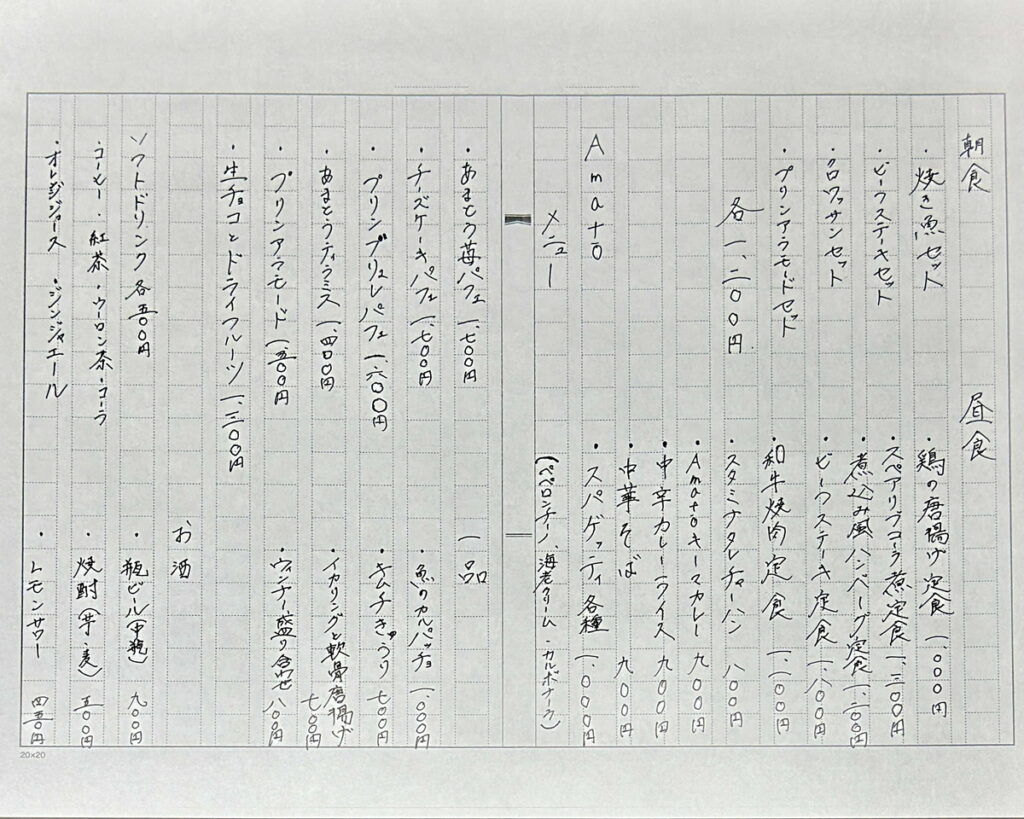 朝食
・焼き魚セット
・ビーフステーキセット
・クロワッサンセット
・プリンアラモードセット
各一、二〇〇円
昼食
・鶏の唐揚げ定食 一、〇〇〇円
・スペアリブコーラ煮定食 一、三〇〇円
・煮込み風ハンバーグ定食 一、二〇〇円
・ビーフステーキ定食 一、八〇〇円
・和牛焼肉定食 一、一〇〇円
・スタミナタレチャーハン 八〇〇円
・Amatoキーマカレー 九〇〇円
・中辛カレーライス 九〇〇円
・中華そば 九〇〇円
・スパゲッティ各種 一、〇〇〇円
(ペペロンチーノ、海老クリーム・カルボナーラ)
Amato
メニュー
・あまとう苺パフェ 一、七〇〇円
・チーズケーキパフェ 一、七〇〇円
・プリンブリュレパフェ 一、六〇〇円
・あまとうティラミス 一、四〇〇円
・プリンアラモード 一、五〇〇円
・生チョコとドライフルーツ 一、三〇〇円
一品
・魚のカルパッチョ 一、〇〇〇円
・キムチきゅうり 七〇〇円
・イカリングと軟骨唐揚げ 七〇〇円
・ウィンナー盛り合わせ 八〇〇円
ソフトドリンク各五〇〇円
・コーヒー・紅茶・ウーロン茶・コーラ
・オレンジジュース・ジンジャエール
お酒
・瓶ビール(中瓶) 九〇〇円
・焼酎(芋・麦) 五〇〇円
・レモンサワー 四五〇円
20×20